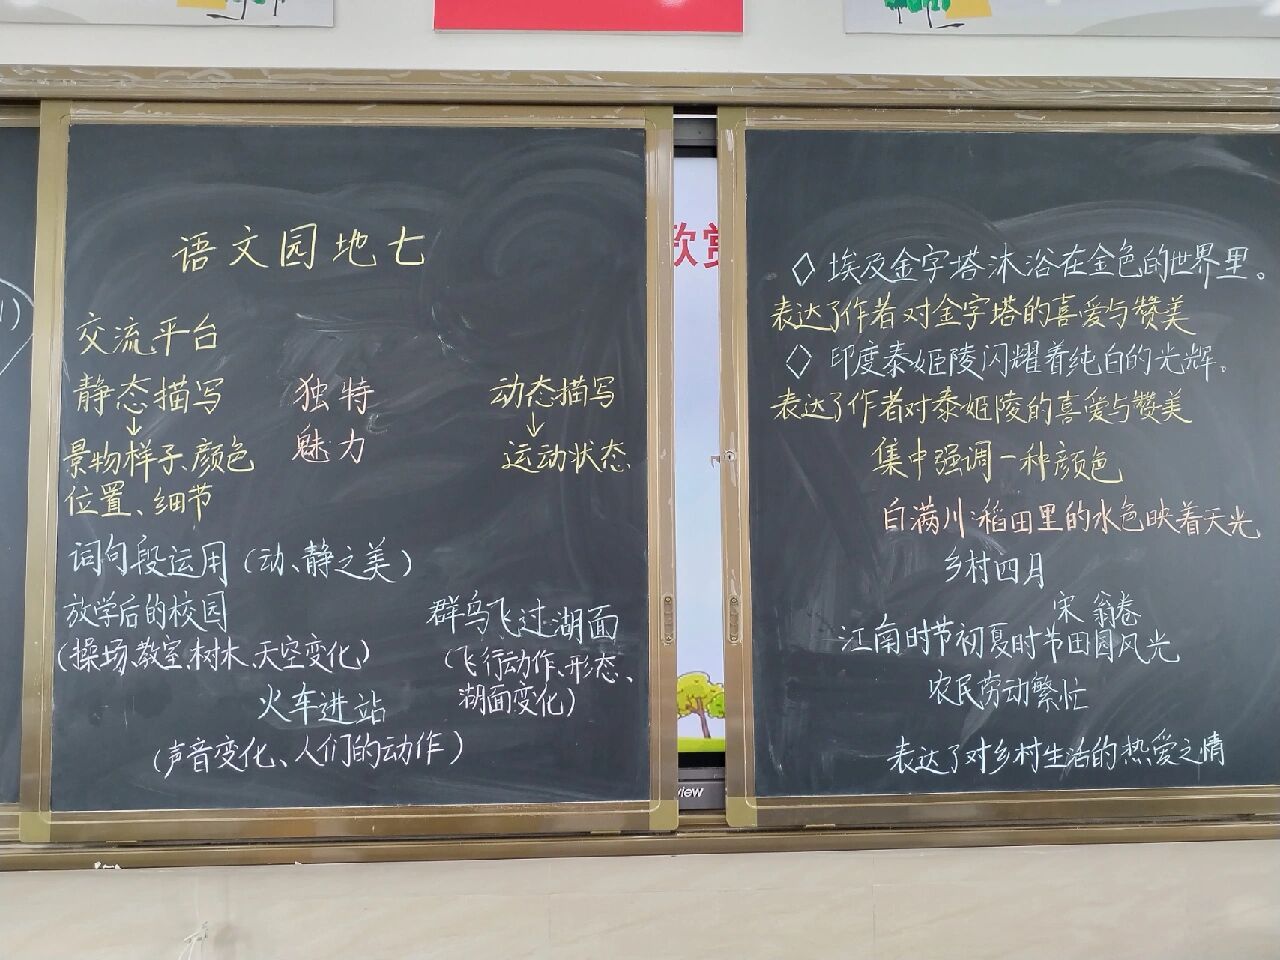 语文园地七
交流平台
静态描写 独特 动态描写
↓ 魅力 ↓
景物样子、颜色 运动状态
位置、细节
词句段运用（动、静之美）
放学后的校园
（操场、教室、树木、天空变化）
群鸟飞过湖面
（飞行动作、形态、
湖面变化）
火车进站
（声音变化、人们的动作）
1)
欣赏
view
◇埃及金字塔沐浴在金色的世界里。
表达了作者对金字塔的喜爱与赞美
◇印度泰姬陵闪耀着纯白的光辉。
表达了作者对泰姬陵的喜爱与赞美
集中强调一种颜色
白满川：稻田里的水色映着天光
乡村四月
宋 翁卷
江南时节初夏时节田园风光
农民劳动繁忙
表达了对乡村生活的热爱之情